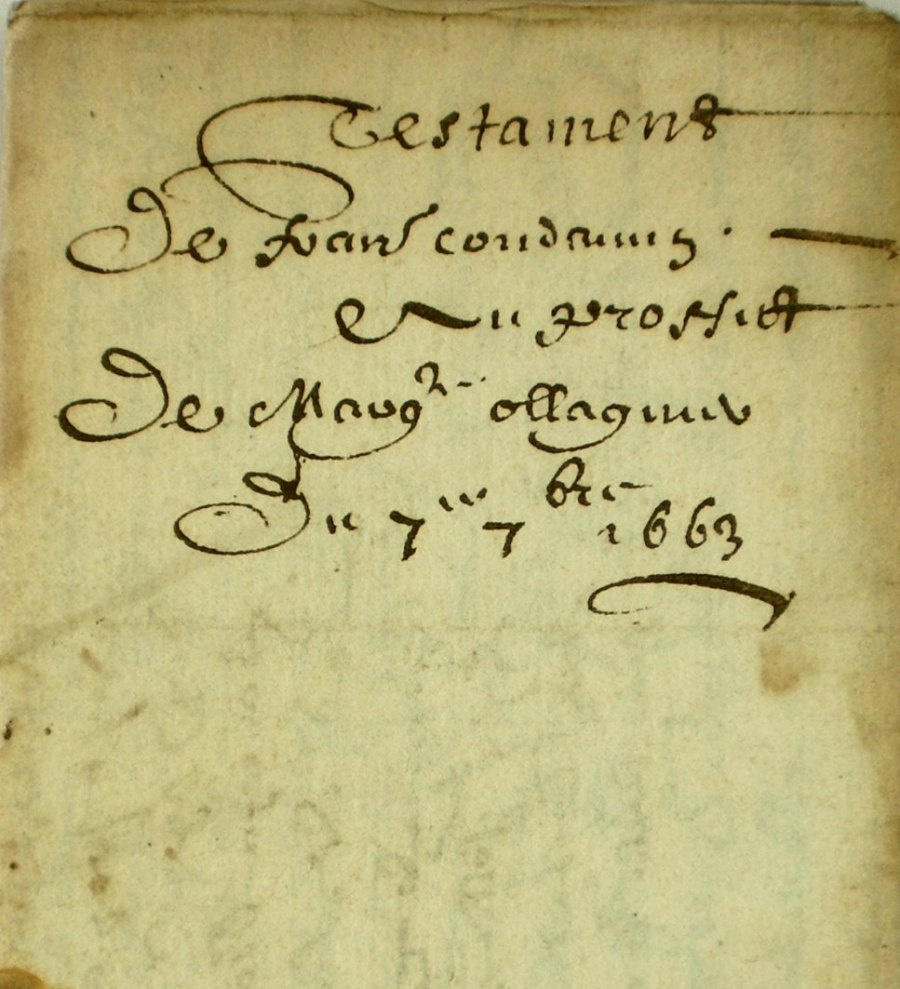 Testament
De fran^s condamin .
Au proffitt
De Marg^r ollagnier
Du 7^e 7^bre 1663